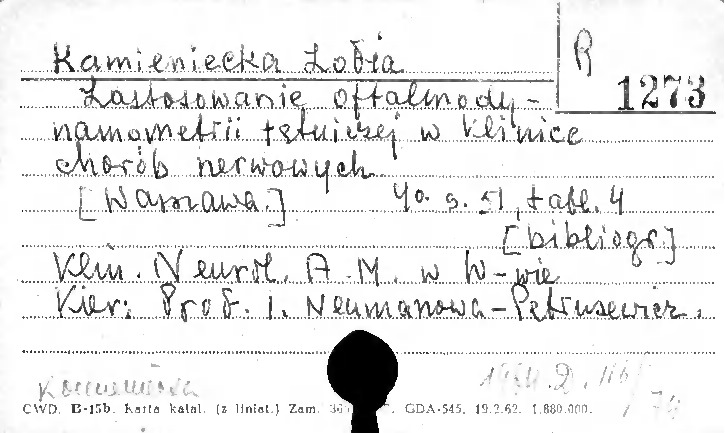 Kamieniecka Zofia
R
1273
Zastosowanie oftalmody-
namometrii tętniczej w klinice
chorób nerwowych
[Warszawa.] 4o. s. 51, tabl. 4
[bibliogr.]
Klin. Neurol. A.M. w W-wie
Kier: Prof. I. Neumanowa-Pętrusewicz.
1964 D. 116/74
CWD. B-15b. Karta katal. (z liniat.) Zam. GDA-545. 19.2.62. 1.880.000.